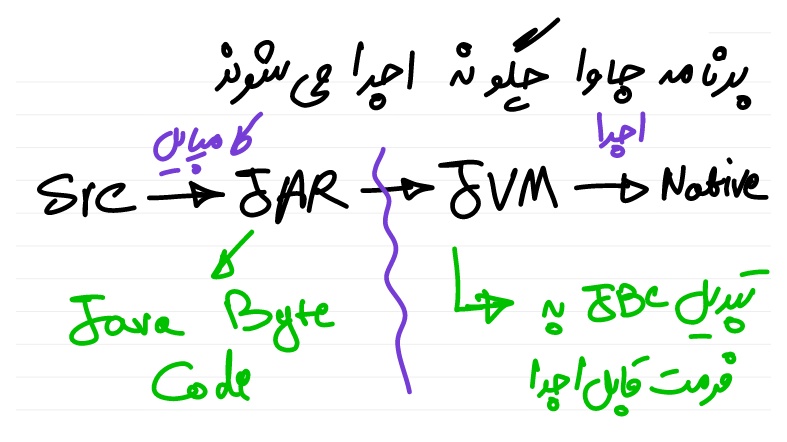 برنامه جاوا چگونه اجرا می شوند
کامپایل
اجرا
Src → JAR → JVM → Native
Java Byte
Code
تبدیل JBC به
فرمت قابل اجرا